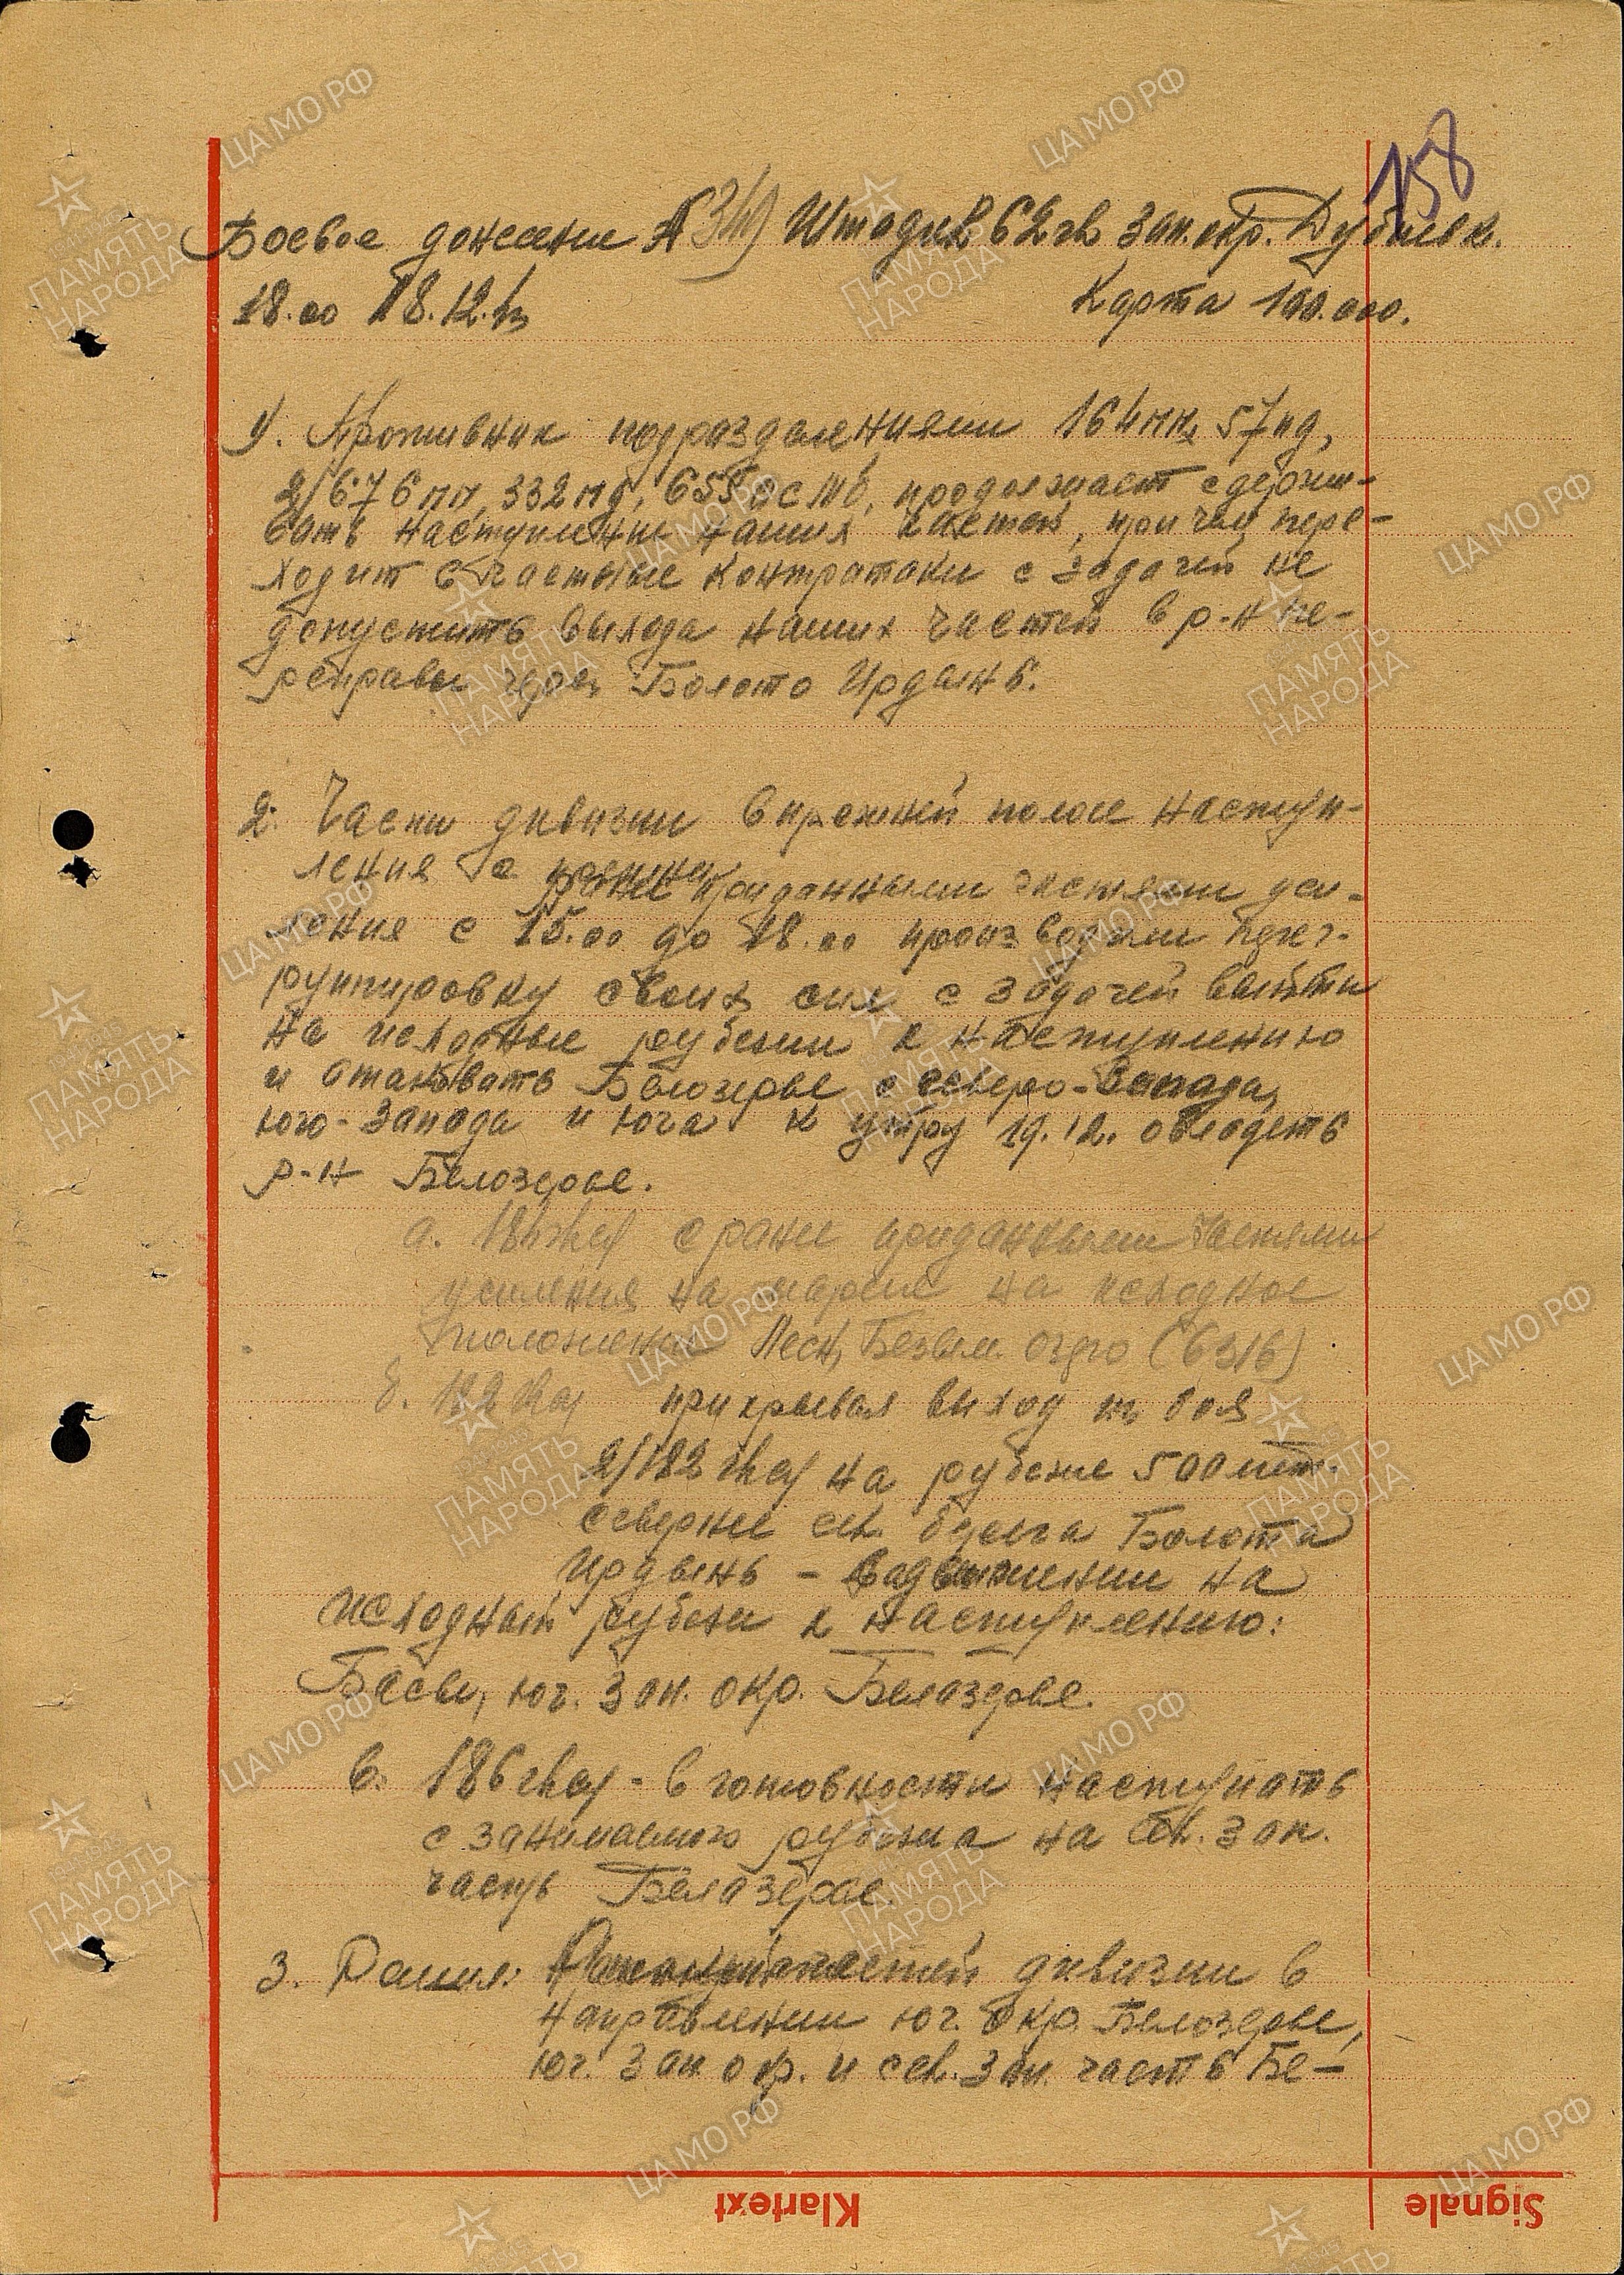 158
Боевое донесение № 340 Штадив 62 гв зап. окр. Дубиевк.
18.00 18.12.43 Карта 100.000.
1). Противник подразделениями 164 пп, 57 пд,
2/676 пп, 332 пд, 655 осмб, продолжает сдержи-
вать наступление наших частей, причем пере-
ходит в частые контратаки с задачей не
допустить выхода наших частей в р-н пе-
реправы через Болото Ирдынь.
2. Части дивизии в прежней полосе наступ-
ления с ранее приданными частями уси-
ления с 15.00 до 18.00 производили перег-
руппировку своих сил с задачей выйти
на исходные рубежи к наступлению
и атаковать Белозерье с северо-запада,
юго-запада и юга к утру 19.12. овладеть
р-н Белозерье.
а. 184 гвсп с ранее приданными частями
усиления на марше на исходное
положение Песч, Безым. озеро (6316)
б. 182 гвсп прикрывая выход из боя
2/182 гвсп на рубеже 500 мт.
севернее сев. берега Болота
Ирдынь – в движении на
исходный рубеж к наступлению:
Басы, юг. зап. окр. Белозерье.
в. 186 гвсп - в готовности наступать
с занимаемого рубежа на св. зап.
часть Белозерье.
3. Решил: частей дивизии в
направлении юг. окр. Белозерье,
юг. зап окр. и сев. зап. часть Бе-
Klartext
Signale
ЦАМО РФ
ПАМЯТЬ НАРОДА